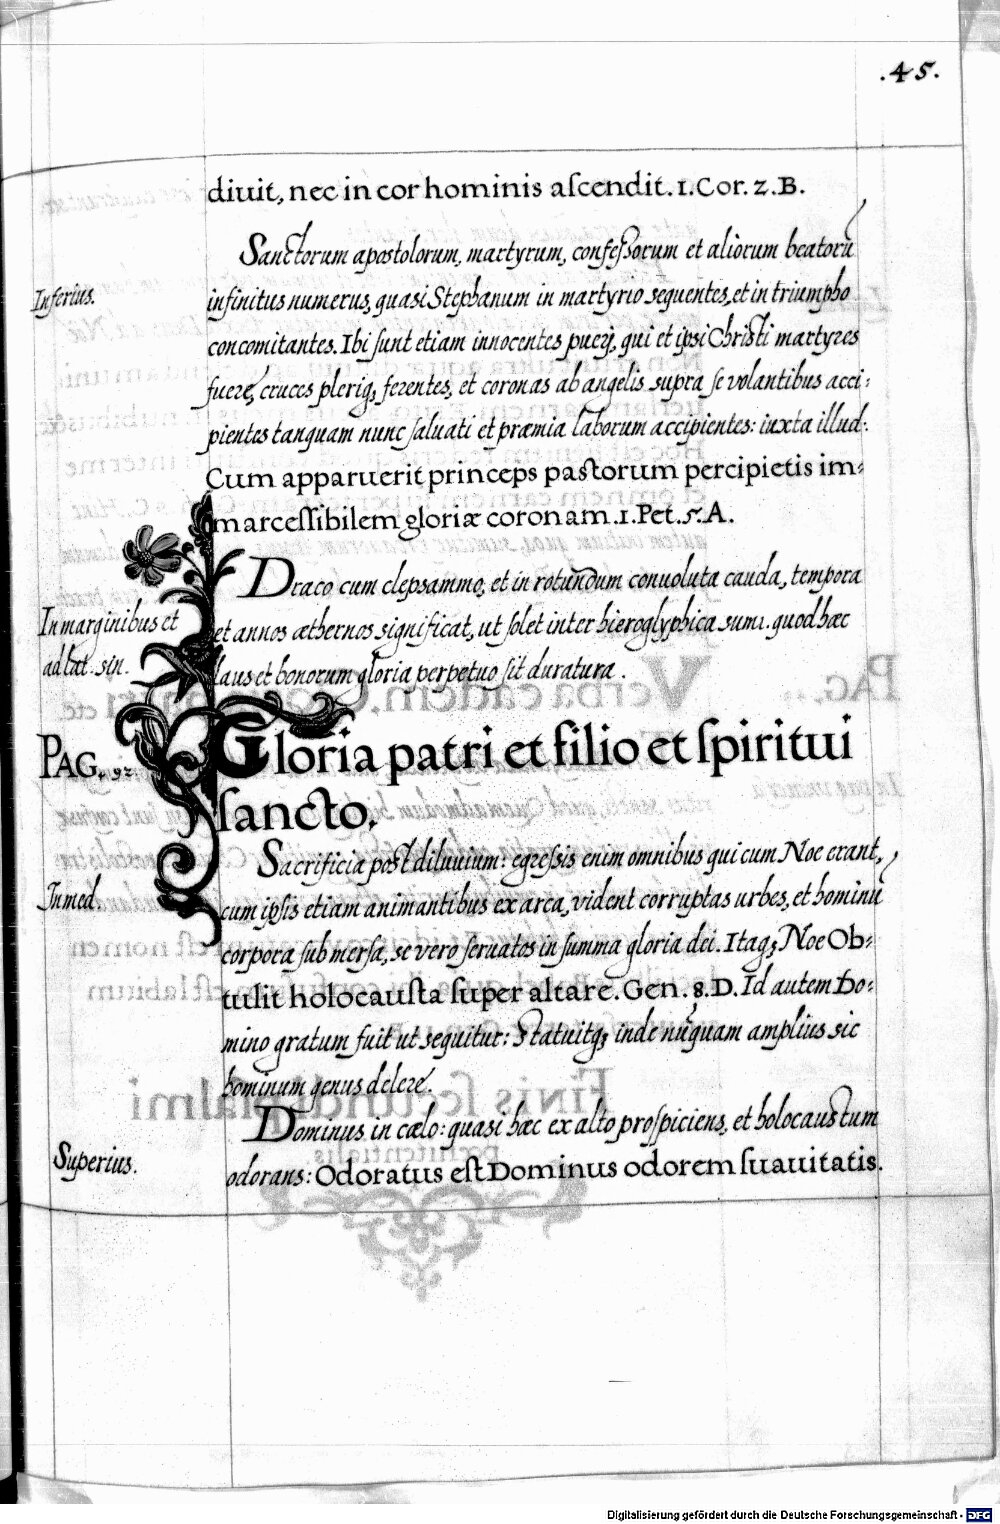 .45.
diuit, nec in cor hominis ascendit. 1. Cor. 2. B.
Sanctorum apostolorum, martyrum, confessorum et aliorum beatorū
Inferius.
infinitus numerus, quasi Stephanum in martyrio sequentes, et in triumpho
concomitantes. Ibi sunt etiam innocentes pueri, qui et ipsi Christi martyres
fuere, cruces pleriq; ferentes, et coronas ab angelis supra se volantibus acci:
pientes tanquam nunc saluati et præmia laborum accipientes: iuxta illud:
Cum apparuerit princeps pastorum percipietis im:
marcessibilem gloriæ coronam. 1. Pet. 5. A.
Draco cum clepsammo, et in rotundum conuoluta cauda, tempora
In marginibus et
et annos æthernos significat, ut solet inter hieroglyphica sumi. quod hæc
ad lat. sin.
laus et bonorum gloria perpetuo sit duratura.
PAG. 92.
Gloria patri et filio et spiritui
sancto.
Sacrificia post diluuium: egressis enim omnibus qui cum Noe erant,
In med.
cum ipsis etiam animantibus ex arca, vident corruptas urbes, et hominū
corpora submersa, se vero seruatos in summa gloria dei. Itaq; Noe Ob:
tulit holocausta super altare. Gen. 8. D. Id autem Do:
mino gratum fuit ut sequitur: Statuitq; inde nūquam amplius sic
hominum genus delere.
Dominus in cælo: quasi hæc ex alto prospiciens, et holocaustum
Superius.
odorans: Odoratus est Dominus odorem suauitatis.
Digitalisierung gefördert durch die Deutsche Forschungsgemeinschaft - DFG